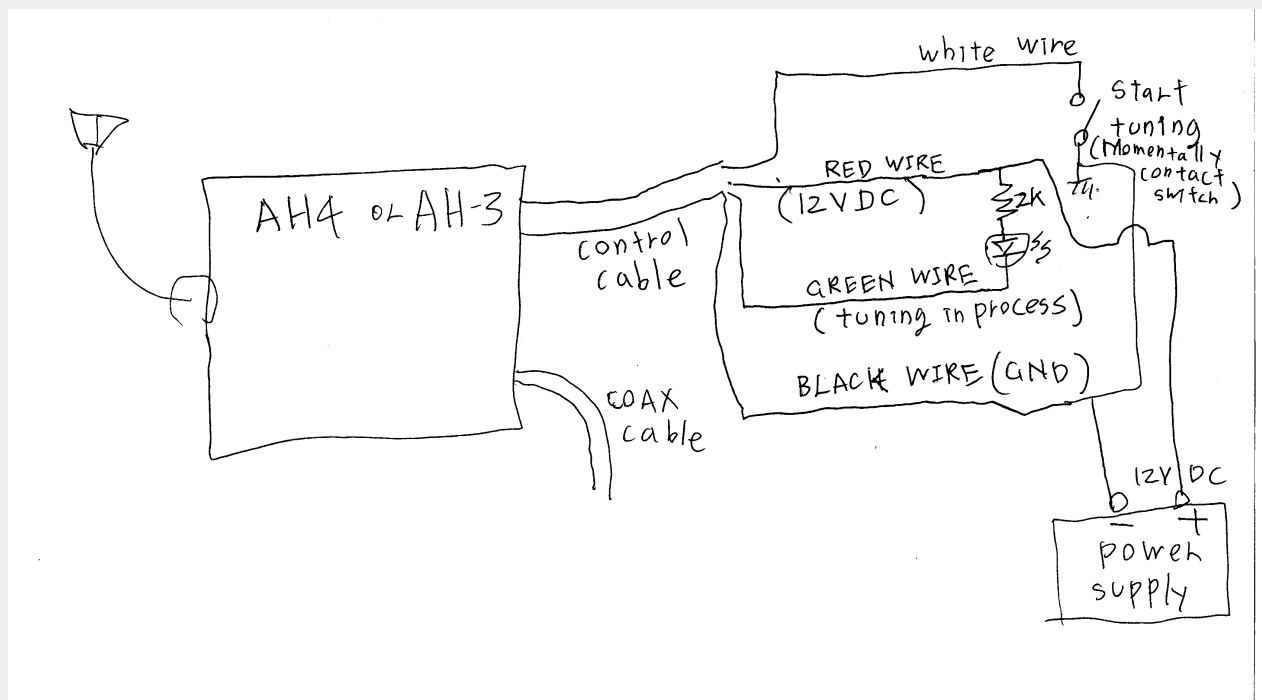 white wire
start
tuning
(Momentally
contact
switch)
RED WIRE
(12VDC)
2K
AH4 or AH-3
control
cable
GREEN WIRE
(tuning in process)
BLACK WIRE (GND)
COAX
cable
12V DC
- +
power
supply